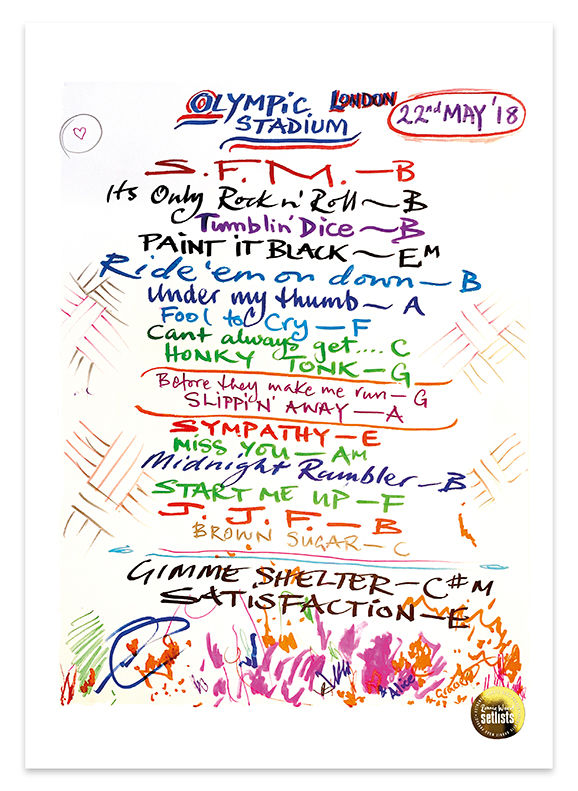 OLYMPIC LONDON
STADIUM
22nd MAY '18
S.F.M. – B
Its Only Rock n' Roll ~ B
Tumblin' Dice ~ B
PAINT IT BLACK ~ EM
Ride 'em on down – B
Under my thumb ~ A
Fool to Cry – F
Cant always get.... C
HONKY TONK – G
Before they make me run – G
SLIPPIN' AWAY – A
SYMPATHY – E
MISS YOU – AM
Midnight Rambler – B
START ME UP – F
J. J. F. – B
BROWN SUGAR – C
GIMME SHELTER – C#M
SATISFACTION – E
Alice
Gracie
Ronnie Wood
setlists